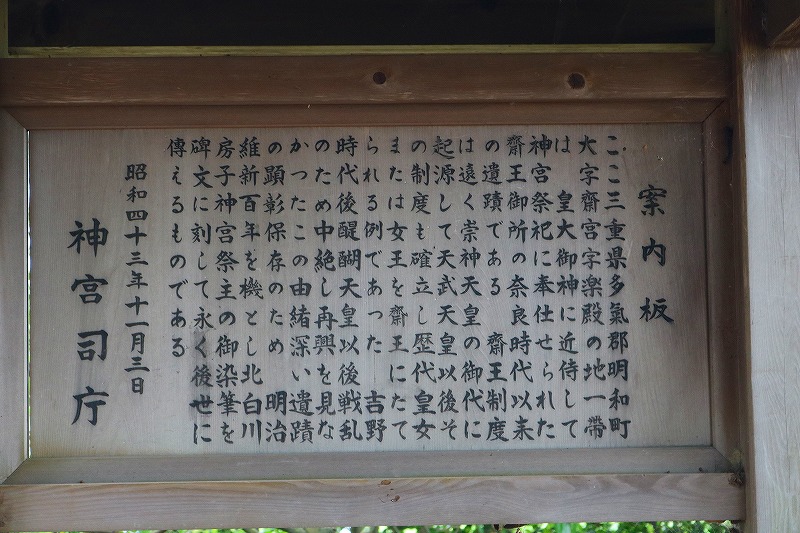 案内板
ここ三重県多氣郡明和町
大字齋宮字楽殿の地一帶
は　皇大御神に近侍して
神宮祭祀に奉仕せられた
齋王御所の奈良時代以来
の遺蹟である　齋王制度
は遠く崇神天皇の御代に
起源して天武天皇以後そ
の制度も確立し歴代皇女
または女王を齋王にたて
られる例であった　吉野
時代後醍醐天皇以後戦乱
のため中絶し再興を見な
かつたこの由緒深い遺蹟
の顕彰保存のため　明治
維新百年を機とし北白川
房子神宮祭主の御染筆を
碑文に刻して永く後世に
傳えるものである
昭和四十三年十一月三日
神宮司庁